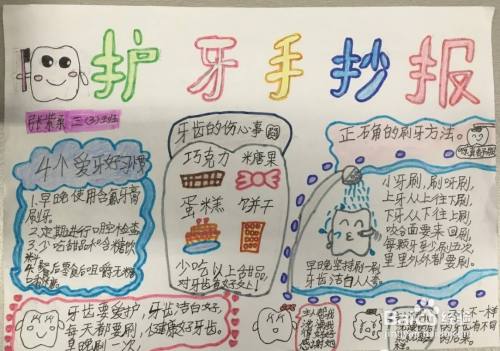 护牙手抄报
三(3)班
4个爱牙好习惯
1.早晚使用含氟牙膏
刷牙.
2.定期进行口腔检查
3.少吃甜品和含糖饮
料
牙齿的伤心事
巧克力 米糖果
蛋糕 饼干
少吃以上甜品,
对牙齿有好处!
正确的刷牙方法。
小牙刷,刷呀刷,
上牙从上往下刷,
下牙从下往上刷,
咬合面要来回刷
每颗牙至少刷五次,
里里外外都要刷。
早晚坚持刷一刷
牙齿洁白人人喜
牙齿要爱护,
每天都要刷
早晚刷一次,
牙齿洁白好,
健康好牙齿。